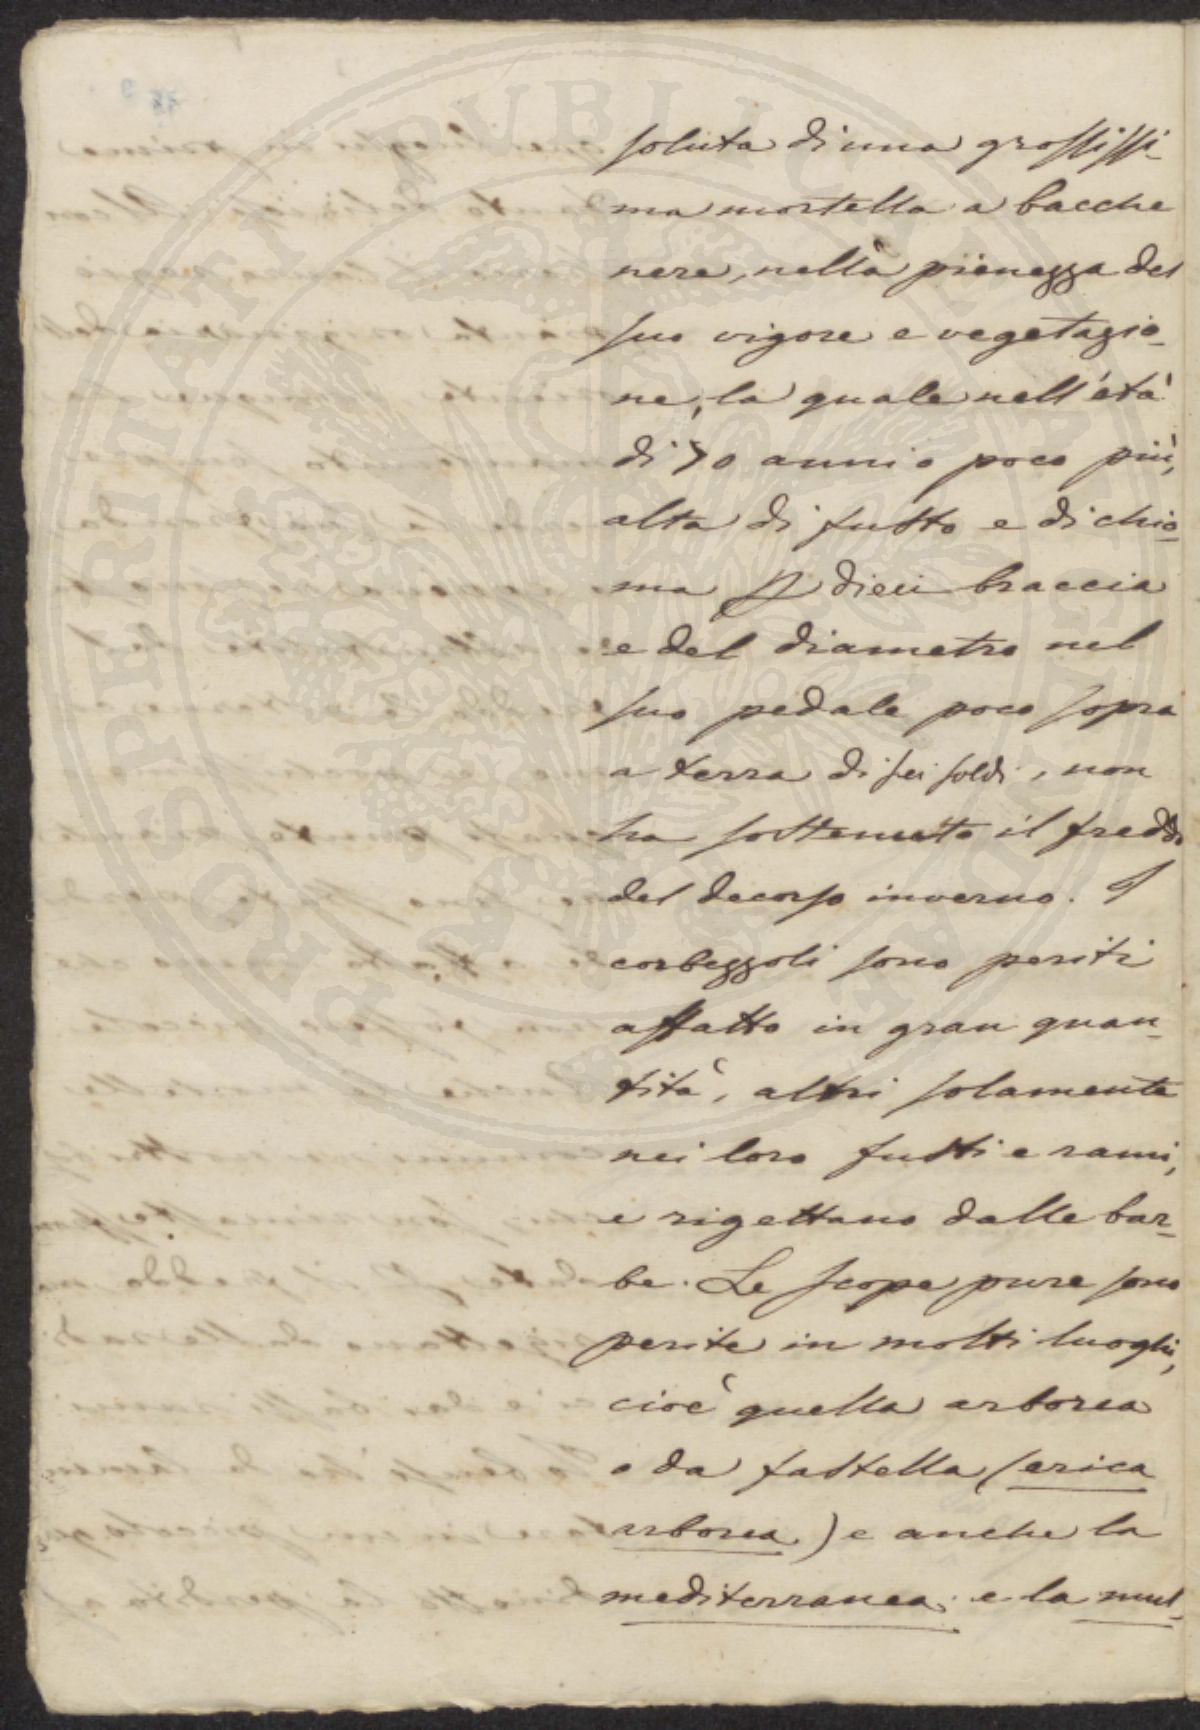 soluta di una grossissi-
ma mortella a bacche
nere, nella pienezza del
suo vigore e vegetazio-
ne, la quale nell'età
di 70 anni o poco più,
alta di fusto e di chio-
ma dieci braccia
e del diametro nel
suo pedale poco sopra
a terra di sei soldi, non
ha sostenuto il freddo
del decorso inverno. I
corbezzoli sono periti
affatto in gran quan-
tità, altri solamente
nei loro fusti e rami,
e rigettano dalle bar-
be. Le scope pure sono
perite in molti luoghi,
cioè quella arborea
o da fastella (erica
arborea.) e anche la
mediterranea. e la mul-
PROSPERITATI PUBLICAE AUGENDAE